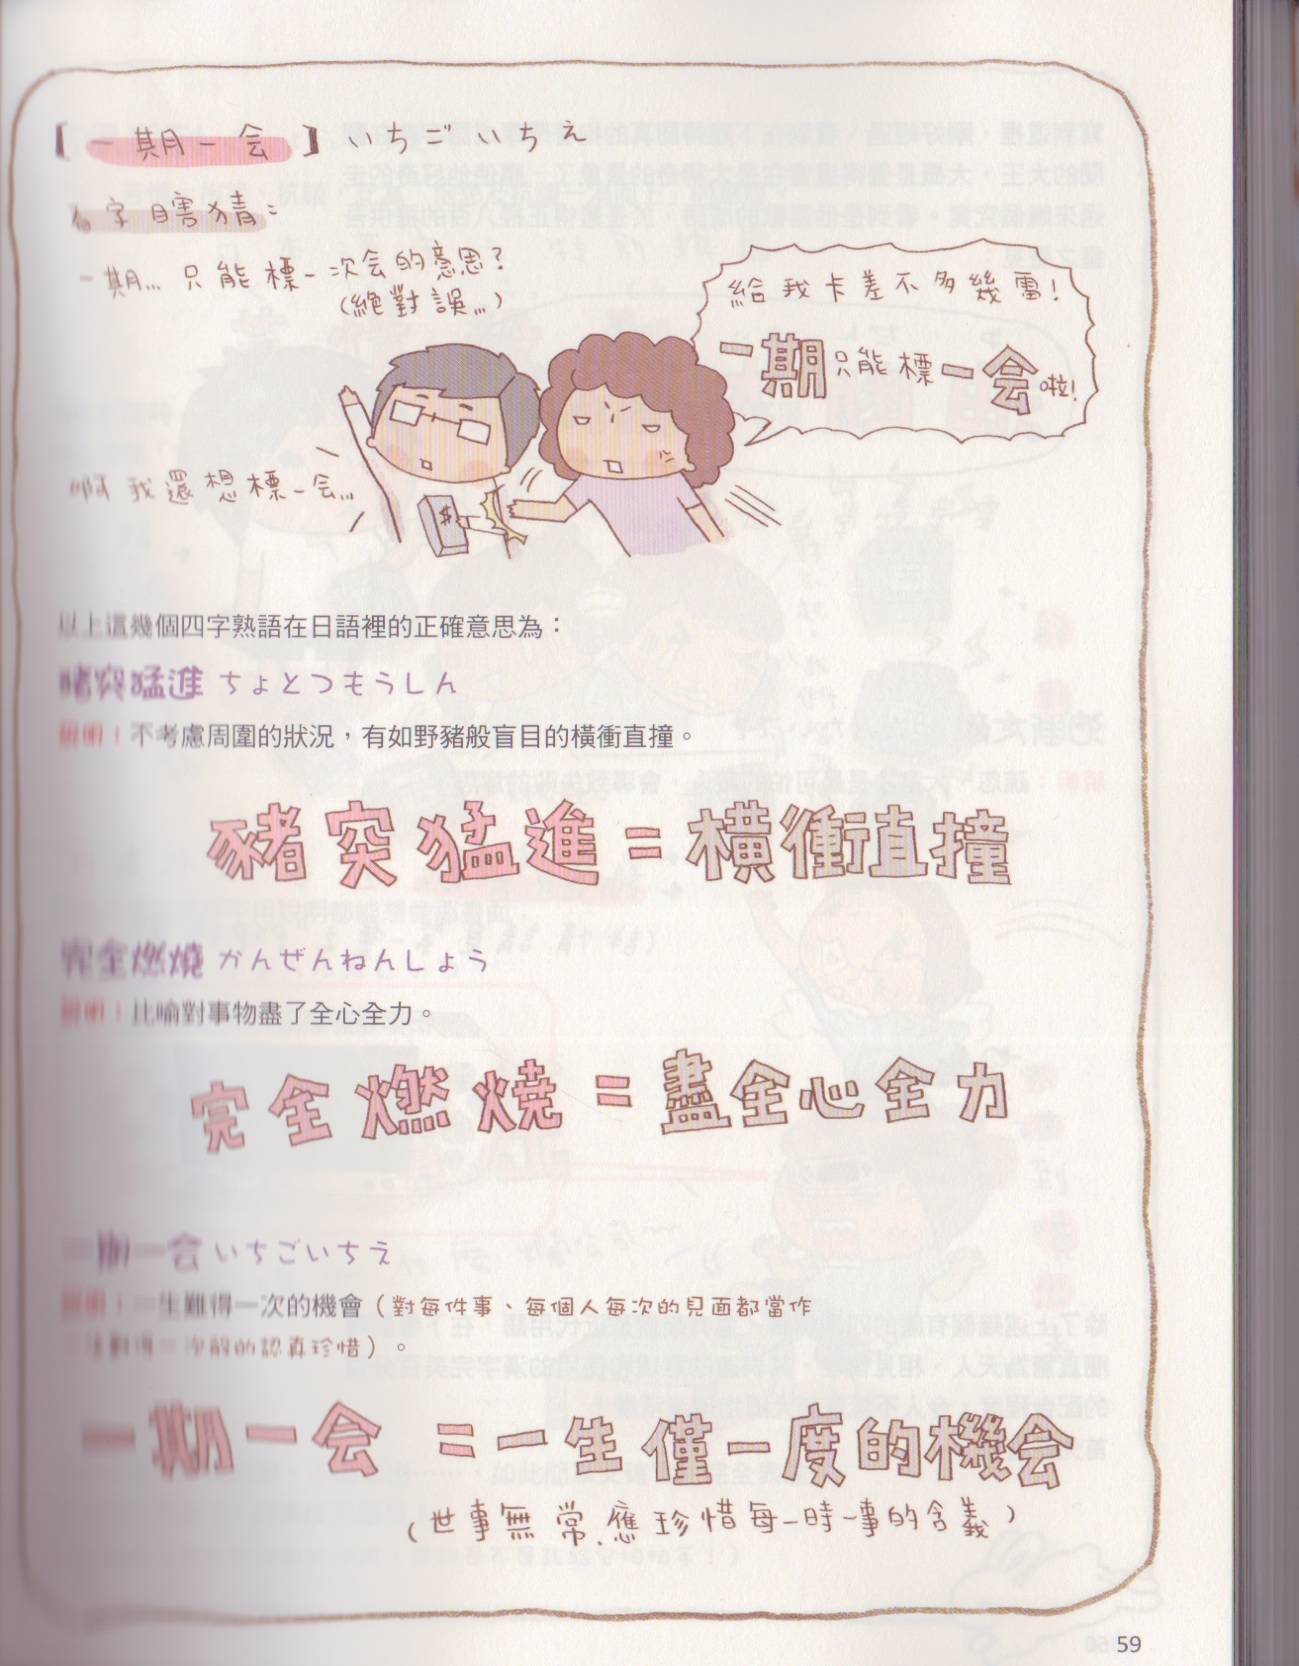 【一期一会】いちごいちえ
名字瞎猜：
一期…只能標一次会的意思？
（絶對誤…）
給我卡差不多幾雷！
一期只能標一会啦！
啊我還想標一会…
$
以上這幾個四字熟語在日語裡的正確意思為：
豬突猛進 ちょとつもうしん
說明：不考慮周圍的狀況，有如野豬般盲目的橫衝直撞。
豬突猛進＝橫衝直撞
完全燃燒 かんぜんねんしょう
說明：比喻對事物盡了全心全力。
完全燃燒＝盡全心全力
一期一会 いちごいちえ
說明：一生難得一次的機會（對每件事、每個人每次的見面都當作
一生難得一次般的認真珍惜）。
一期一会＝一生僅一度的機会
（世事無常、應珍惜每一時一事的含義）
59